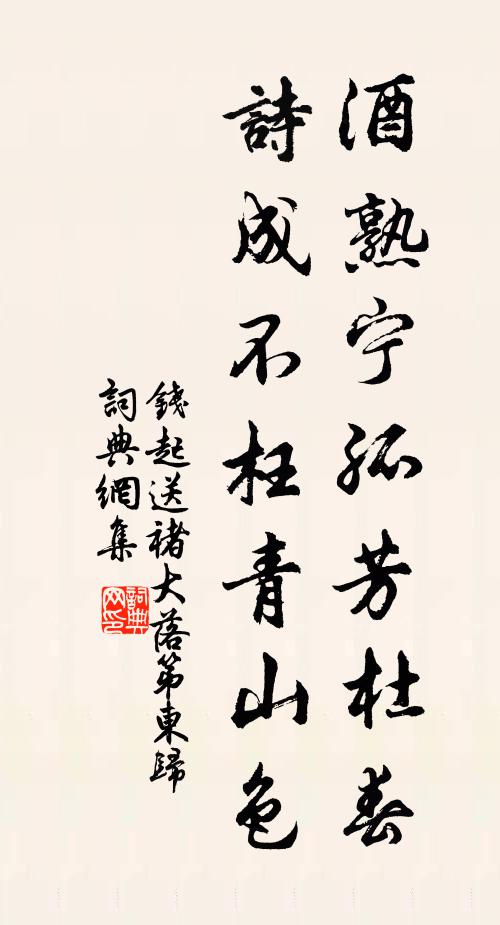 酒熟宁孤芳杜春
詩成不枉青山色
錢起送褚大落第東歸
詞典網集
詞典网印